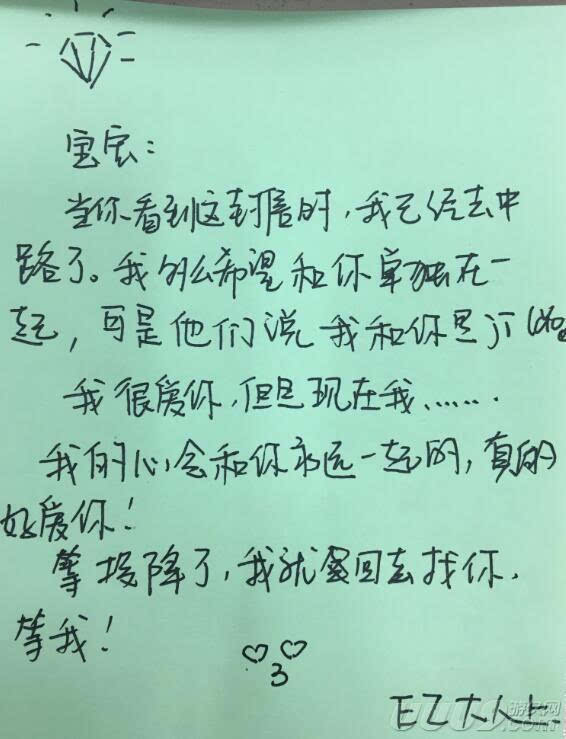 宝宝：
当你看到这封信时，我已经去中
路了。我多么希望和你单独在一
起，可是他们说我和你是JI
我很爱你，但是现在我……
我的心会和你永远一起的，真的
好爱你！
等投降了，我就会回去找你，
等我！
3
EZ大人上.
游侠网